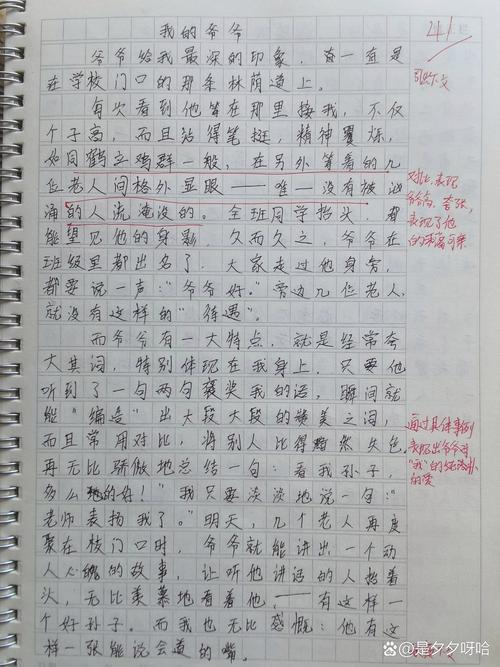 我的爷爷
41
爷爷给我最深的印象，有一直是
在学校门口的那条林荫道上。
每次看到他等在那里接我，不仅
个子高，而且站得笔挺，精神矍烁，
如同鹤立鸡群一般，在另外等着的几
位老人间格外显眼——唯一没有被汹
涌的人流淹没的。全班同学抬头，都
能望见他的身影。久而久之，爷爷在
班级里都出名了。大家走过他身旁，
都要说一声："爷爷好。"旁边几位老人，
就没有这样的"待遇"。
对比，表现
表现了他
而爷爷有一大特点，就是经常夸
大其词，特别体现在我身上。只要他
听到了一句两句褒奖我的话，瞬间就
能"编造"出大段大段的赞美之词，
而且常用对比，将别人比得黯然失色，
再无比骄傲地总结一句：看我孙子，
多么的好！"我只要淡淡地说一句："
老师表扬我了。"明天，几个老人再度
聚在校门口时，爷爷就能讲出一个动
人心魄的故事，让听他讲话的人抬着
头，无比羡慕地看着他，——有这样一
个好孙子。而我也无比感慨：他有这
样一张能说会道的嘴。
通过具体事例
表现出爷爷对
"我"的
的爱
@是夕夕呀哈